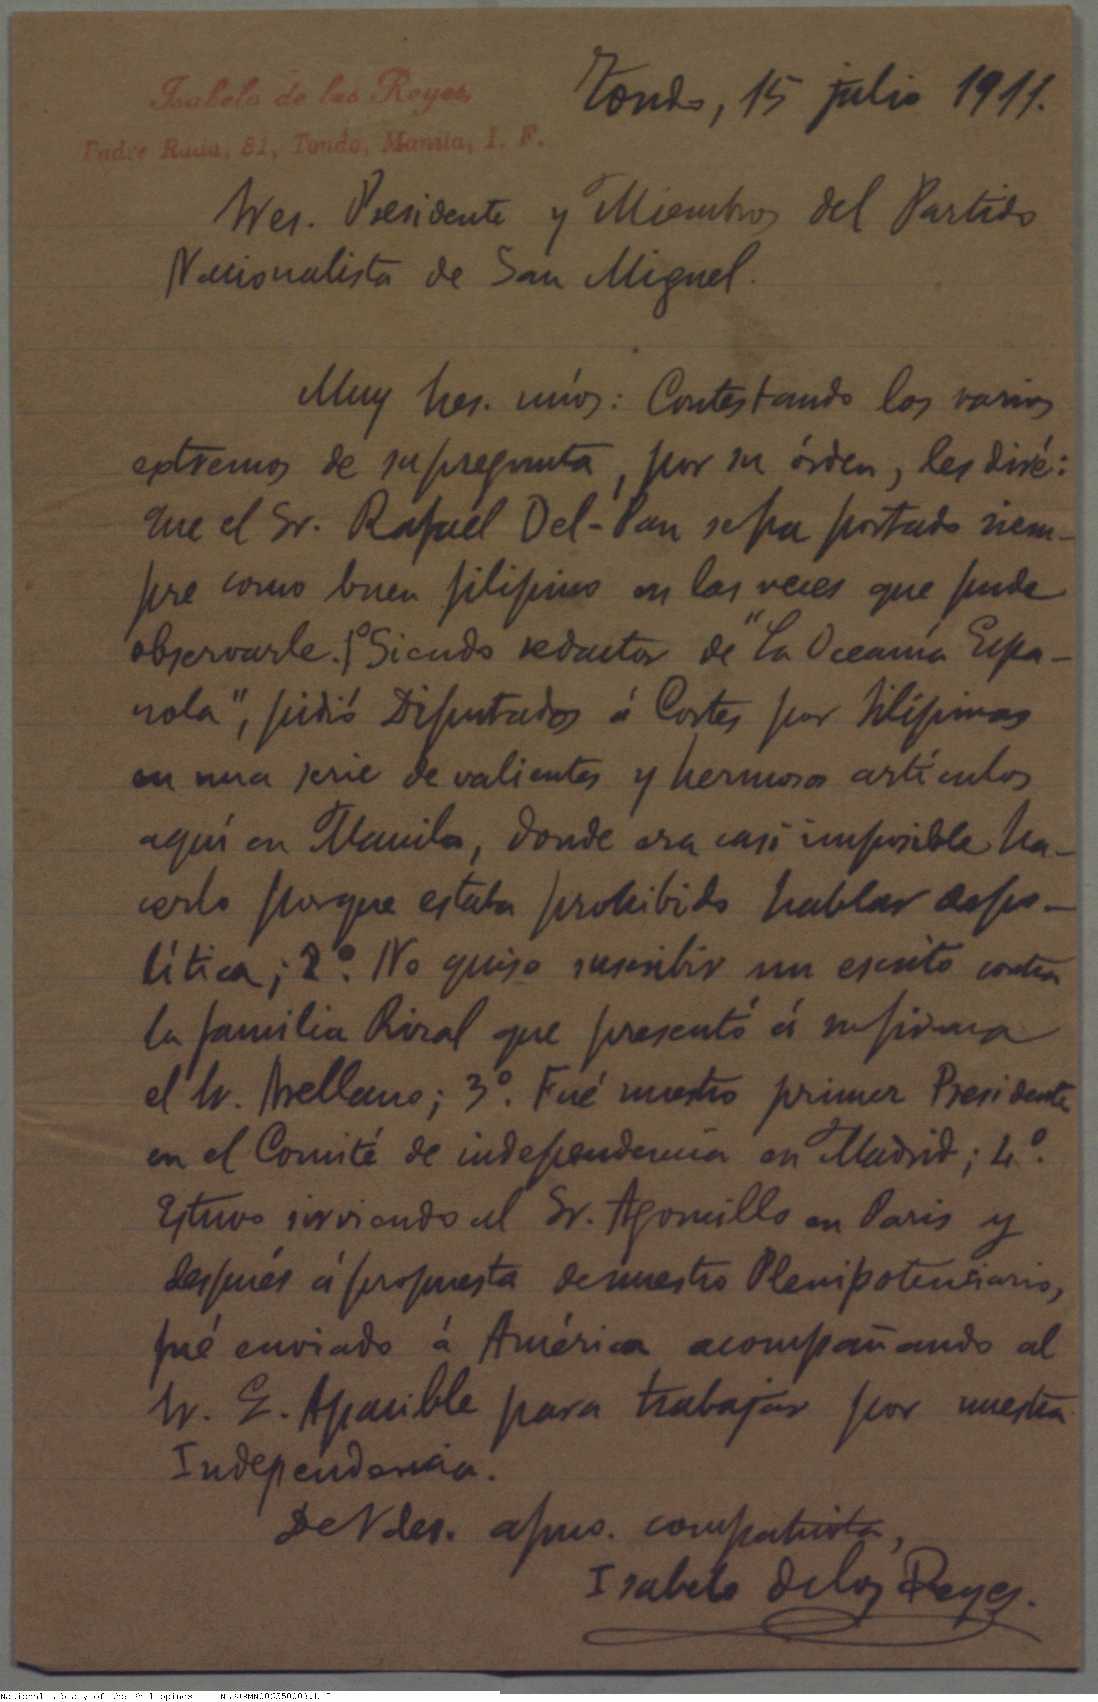 Isabelo de los Reyes
Padre Rada, 81, Tondo, Manila, I. F.
Tondo, 15 julio 1911.
Sres. Presidente y Miembros del Partido
Nacionalista de San Miguel.
Muy Sres. míos: Contestando los varios
extremos de su pregunta, por su órden, les diré:
Que el Sr. Rafael Del-Pan se ha portado siem-
pre como buen filipino en las veces que pude
observarle. 1º Siendo redactor de "La Oceanía Espa-
ñola", pidió Diputados á Cortes por Filipinas
en una serie de valientes y hermosos artículos
aquí en Manila, donde era casi imposible ha-
cerlo porque estaba prohibido hablar de po-
lítica; 2º. No quiso suscribir un escrito contra
la familia Rizal que presentó á su firma
el Sr. Arellano; 3º. Fué nuestro primer Presidente
en el Comité de independencia en Madrid; 4º.
Estuvo sirviendo al Sr. Agoncillo en Paris y
después á propuesta de nuestro Plenipotenciario,
fué enviado á América acompañando al
Sr. G. Apacible para trabajar por nuestra
Independencia.
De Vdes. afmo. compatriota,
Isabelo de los Reyes.
National Library of the Philippines